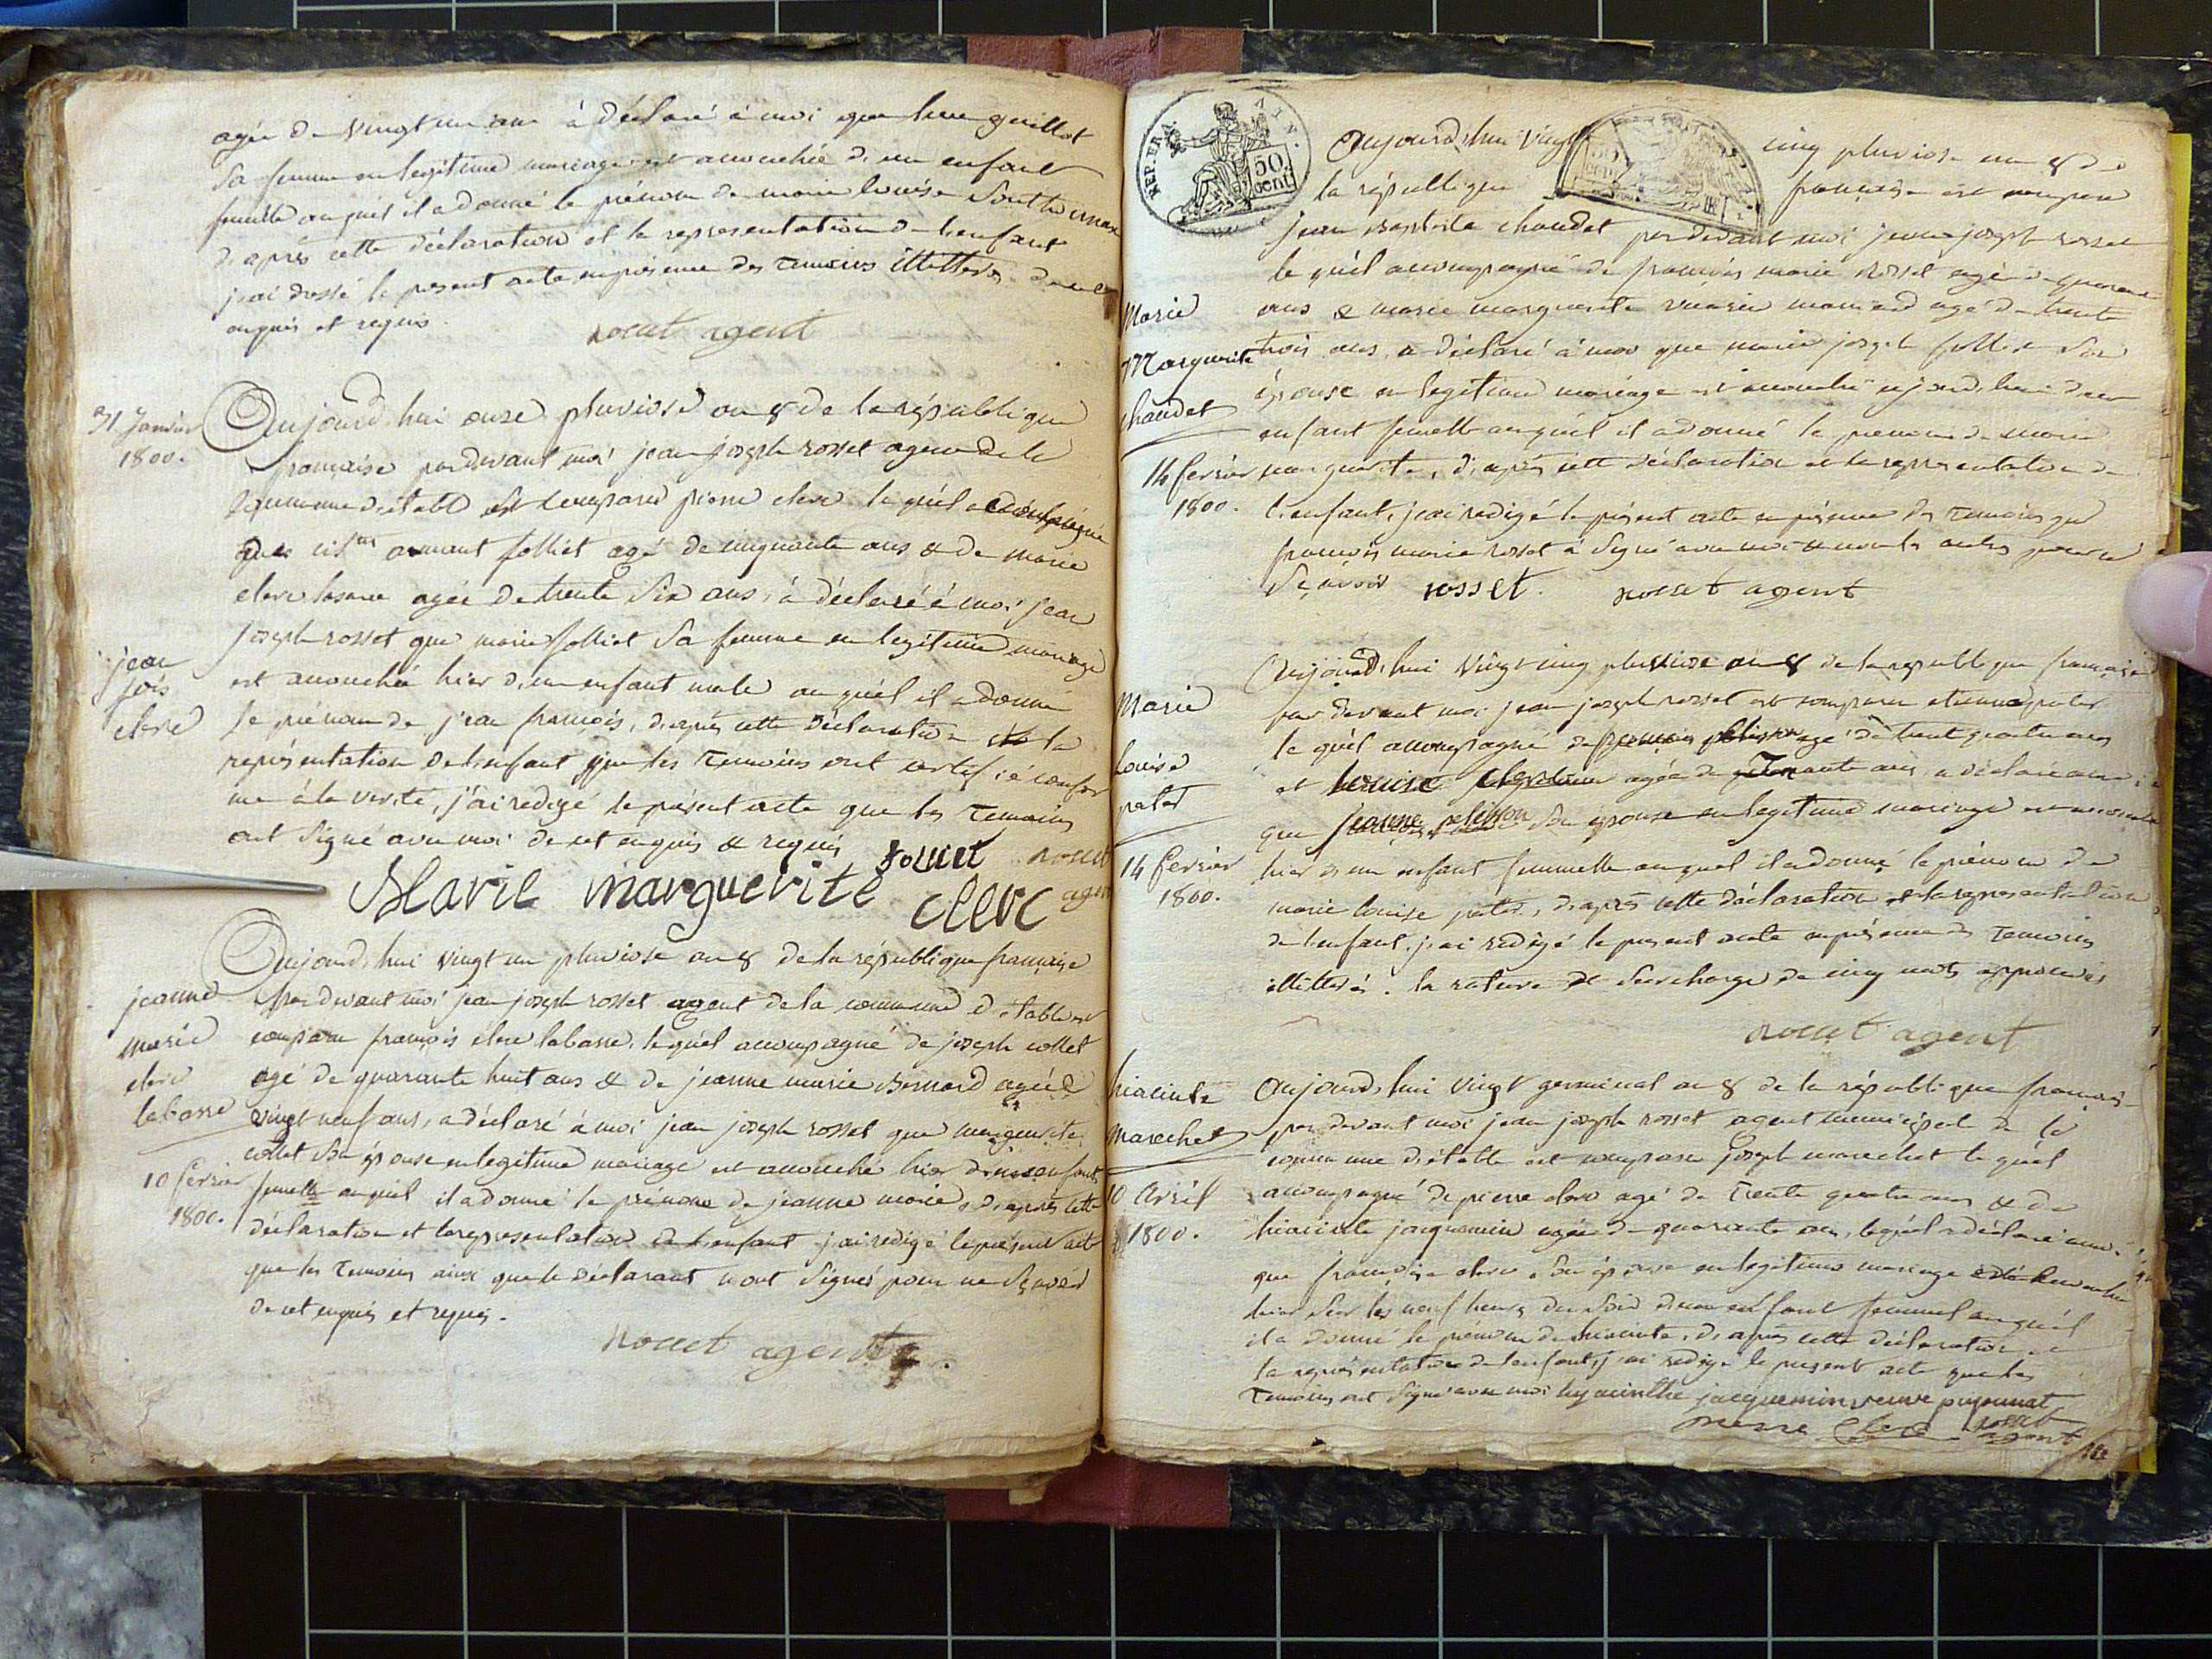 agée de vingt un ans à déclaré à moi que guillot
sa femme en legitime mariage est accouchée d'un enfant
femelle auquel il a donné le prénom de marie louise
d'après cette déclaration et la representation de l'enfant
j'ai dressé le present acte en présence des temoins illitterés de ce
enquis et requis.
rosset agent
31 Janvier
1800.
jean
fois
clerc
Aujourd'hui onze pluviose an 8 de la république
française pardevant moi jean joseph rosset agent de la
commune d'etable est comparu pierre clerc le quel accompagné
amant folliet agé de cinquante ans & de marie
clerc agée de trente six ans, à déclaré à moi jean
joseph rosset que marie folliet sa femme en legitime mariage
est accouchée hier d'un enfant male au quel il a donné
le prénom de jean françois, d'après cette déclaration & la
représentation de l'enfant que les temoins ont certifié confor
me à la verité, j'ai redigé le présent acte que les temoins
ont signé avec moi de cet enquis & requis
rosset
agent
Marie marguerite clerc
jeanne
marie
clerc
labasse
10 fevrier
1800.
Aujourd'hui vingt un pluviose an 8 de la république française
par devant moi jean joseph rosset agent de la commune d'etable est
comparu françois clerc labasse, lequel accompagné de joseph collet
agé de quarante huit ans & de jeanne marie Bernard agée de
vingt neuf ans, a déclaré à moi jean joseph rosset que marguerite
collet son épouse en legitime mariage est accouchée hier d'un enfant
femelle auquel il a donné le prenom de jeanne marie, d'après cette
déclaration et la representation de l'enfant j'ai redigé le présent acte
que les temoins ainsi que le déclarant n'ont signés pour ne sçavoir
de cet enquis et requis.
rosset agent
REP. FRA.
50
cent.
Marie
Marguerite
chaudet
14 fevrier
1800.
Aujourd'hui vingt cinq pluviose an 8 de
la république française est comparu
jean Baptiste chaudet par devant moi jean joseph rosset
le quel accompagné de françois marie rosset agé de quarante
ans & marie marguerite agé de trente
trois ans, a déclaré à moi que marie joseph folliet son
épouse en legitime mariage est accouchée aujourd'hui d'un
enfant femelle auquel il a donné le prenom de marie
marguerite, d'après cette déclaration et la representation de
l'enfant, j'ai redigé le présent acte en présence des temoins que
françois marie rosset a signé avec moi & non les autres pour ne
sçavoir rosset. rosset agent
Marie
louise
patet
14 fevrier
1800.
Aujourd'hui vingt cinq pluviose an 8 de la republique française
par devant moi jean joseph rosset est comparu etienne patet
le quel accompagné de françois pelisson agé de trent quatre ans
et louise agée de ans, a déclaré à moi
que jeanne pelisson son epouse en legitime mariage est accouchée
hier d'un enfant femmelle auquel il a donné le prénom de
marie louise patet, d'après cette déclaration et la representation
de l'enfant. j'ai redigé le present acte en présence des temoins
illitterés. la rature & surcharge de cinq mots approuvés
rosset agent
hiacinte
marechet
10 Avril
1800.
Aujourd'hui vingt germinal an 8 de la république français
par devant moi jean joseph rosset agent municipal de la
commune d'etable est comparu joseph marechet le quel
accompagné de pierre clerc agé de trente quatre ans & de
hiacinte jacquemin agée de quarante ans, lequel a déclaré à moi
que françoise clerc, son épouse en legitime mariage est accouchée
hier sur les neuf heures du soir d'un enfant femmel auquel
il a donné le prénom de hiacinte, d'après cette déclaration et
la representation de l'enfant, j'ai redigé le present acte que les
temoins ont signé avec moi hyacinthe jacquemin veuve
pierre clerc rosset
agent